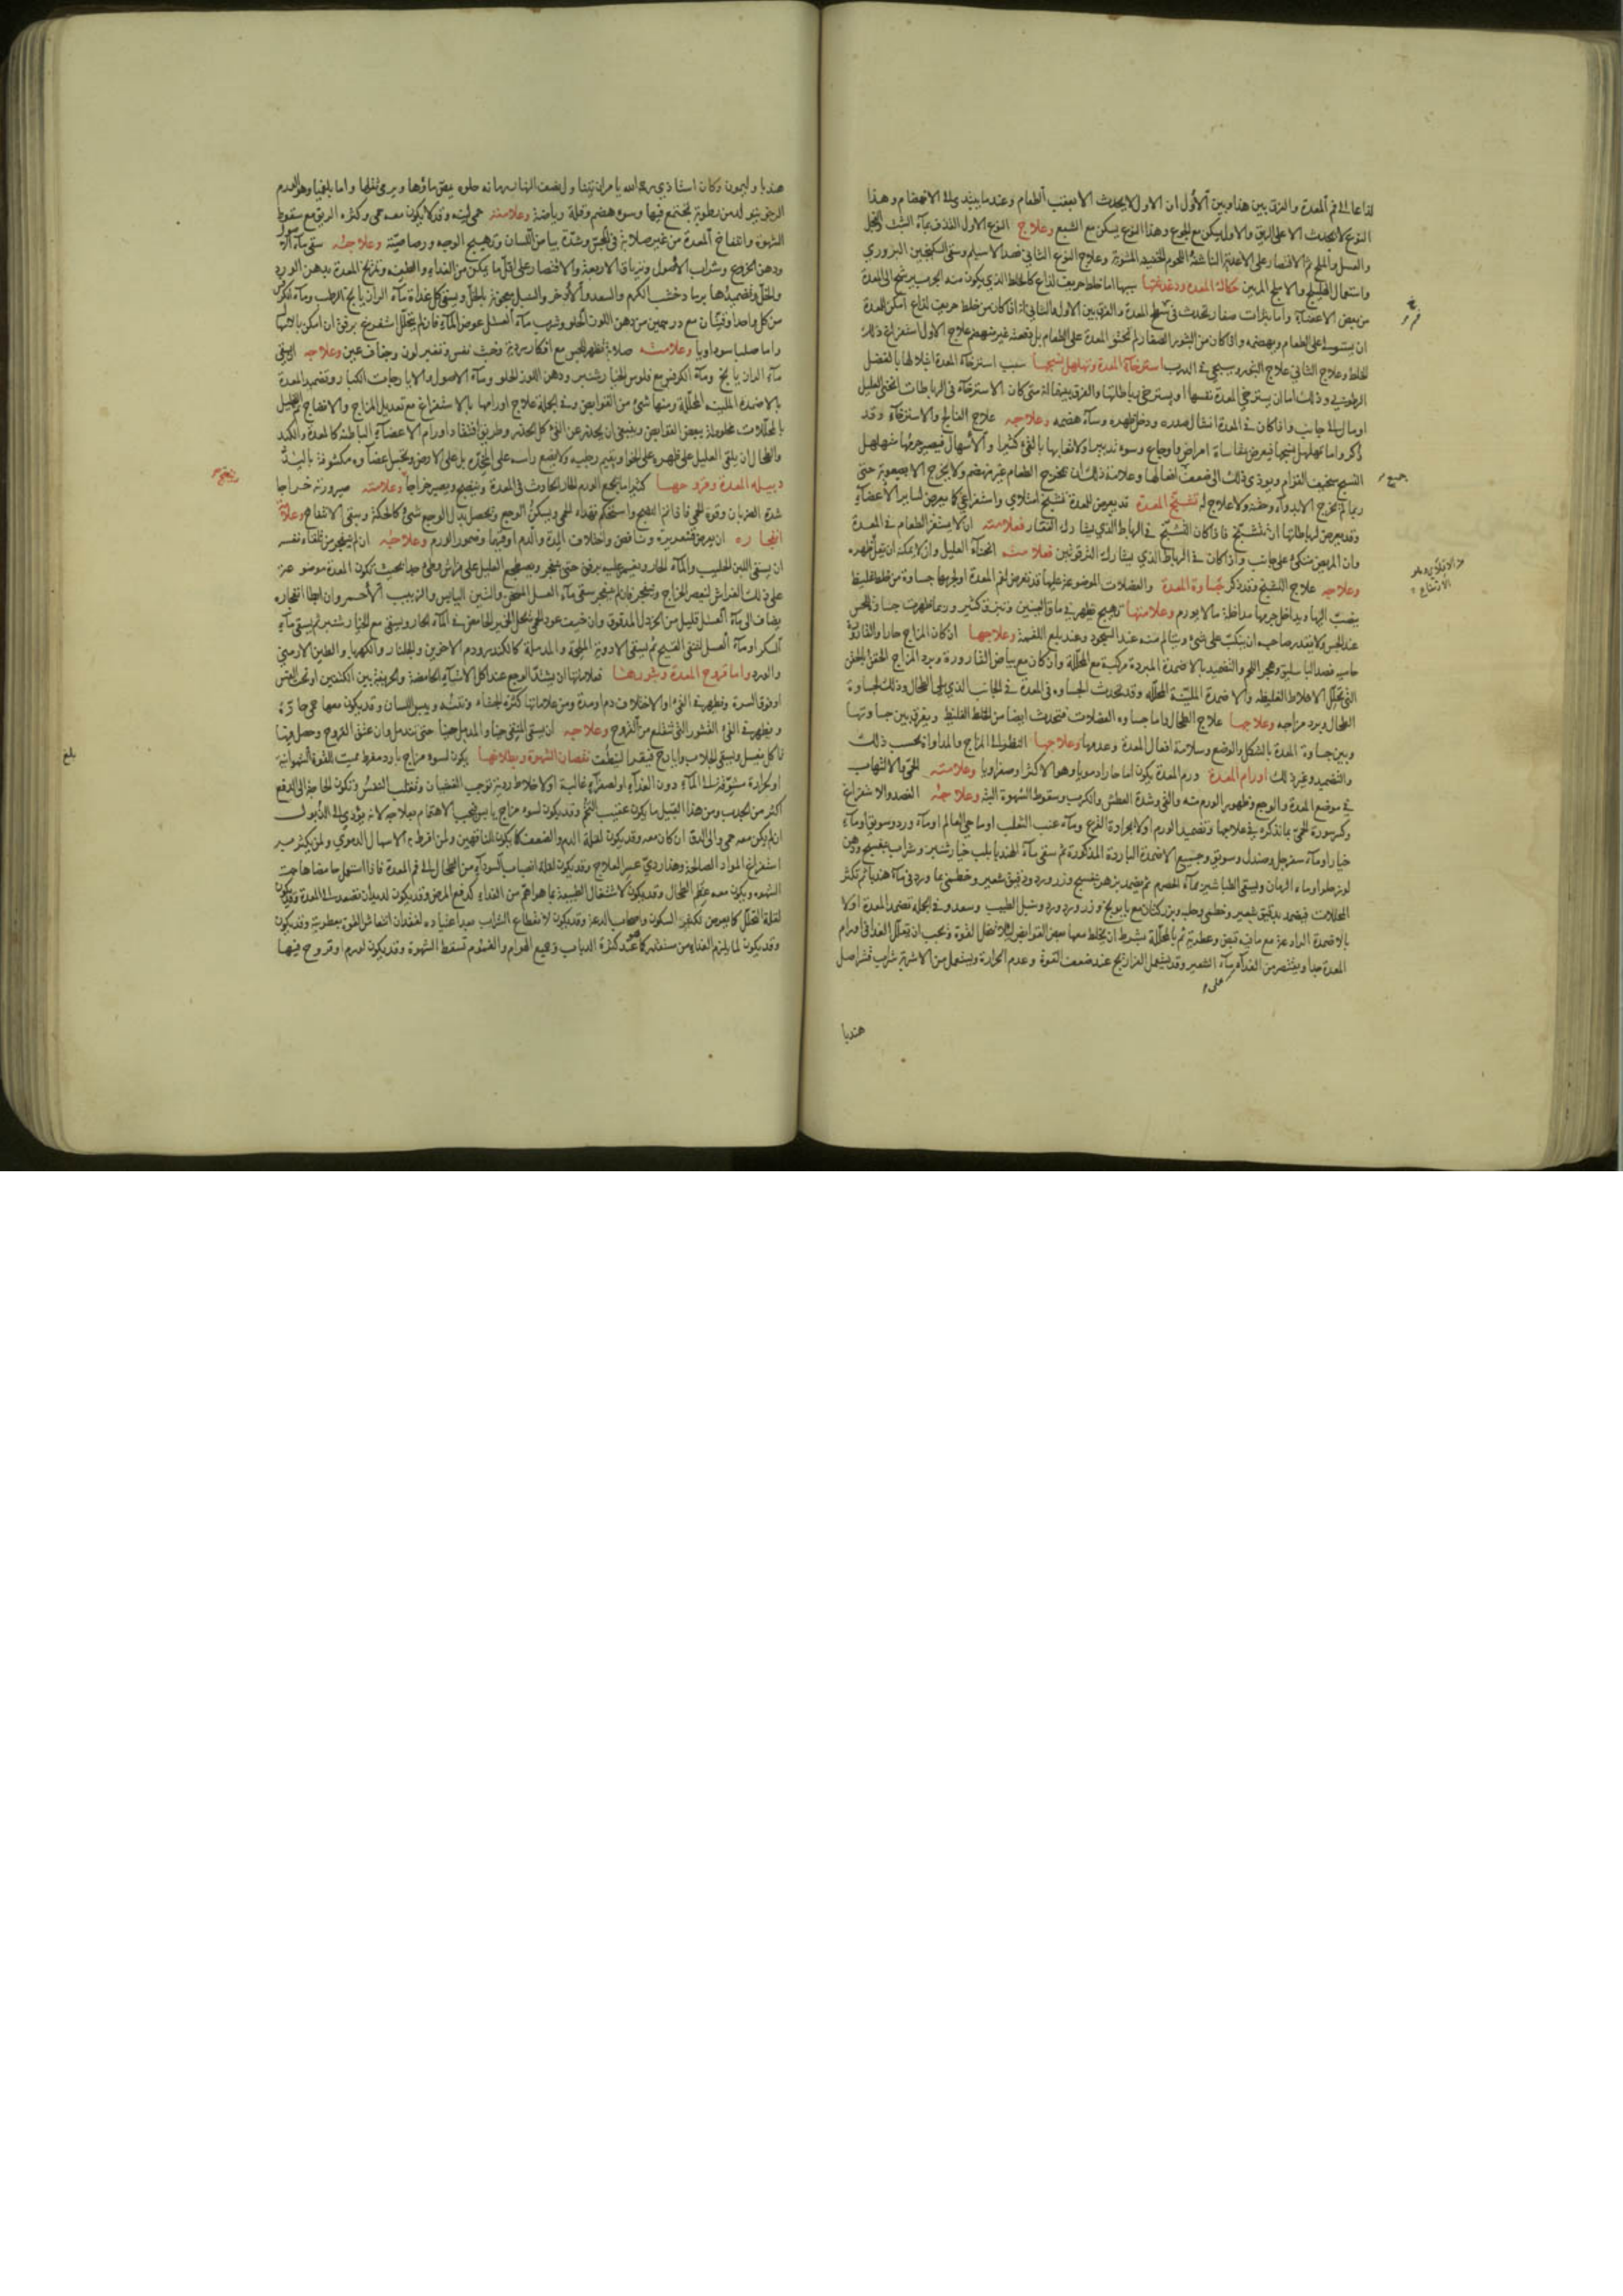 لذاعا الى فم المعدة والفرق بين هذا وبين الأول ان الاول لا يحدث الا بعقب الطعام وعندما يبتدى الانهضام وهذا
النوع لا يحدث الا على الريق والاول يسكن مع الجوع وهذا النوع يسكن مع الشبع وعلاج النوع الاول القذف بمآء الشبث والفجل
والعسل والملح ثم الاقتصار على الاغذية الناشفة واللحوم المشوية وعلاج النوع الثاني فصد الاسيلم وسقى السكنجبين البزوري
واستعمال الهليلج والاملج المربين حكاك المعدة ودغدغتها سببها اما خلط حريف لذاع كالخلط الذي يكون منه الجرب يرشح الى المعدة
من بعض الاعضآء واما بثرات صغار تحدث في سطح المعدة والفرق بين الاول والثاني انه اذا كان من خلط حريف لذاع امكن المعدة
ان يستولى على الطعام ويهضمه واذا كان من البثور الصغار لم تحتو المعدة على الطعام بل دفعته غير منهضم علاج الاول استفراغ ذلك
الخلط وعلاج الثاني علاج البثور وسيجي في الذرب استرخآء المعدة وتهلهل نسيجها سبب استرخآء المعدة ابتلالها بالفضل
الرطوبي وذلك اما ان يسترخي المعدة نفسها او يسترخي رباطاتها والفرق بينهما انه متى كان الاسترخآء في الرباطات انحنى العليل
او مال الى جانب واذا كان في المعدة انشال صدره ودخل ظهره وسآء هضمه وعلاجه علاج الفالج والاسترخآء وقد
ذكر واما تهلهل نسيجها فيعرض لمقاساة امراض واوجاع وسوء تدبير اولاتعابها بالقئ كثيرا والاسهال فيصير جرمها متهلهل
النسيج سخيف القوام ويودي ذلك الى ضعف افعالها وعلامة ذلك ان يخرج الطعام غير منهضم ولا يخرج الا بصعوبة حتى
ربما لم يخرج الا بدوآء وحقنة ولا علاج له تشنج المعدة قد يعرض للمعدة تشنج امتلاي واستفراغي كما يعرض لساير الاعضآء
وقد يعرض لرباطاتها ان تتشنج فاذا كان التشنج في الرباط الذي يشارك الفقار فعلامته ان لا يستقر الطعام في المعدة
وان المريض متكئ على جانب واذا كان في الرباط الذي يشارك الترقوتين فعلامته انحنآء العليل وان لا يمكنه ان يقل ظهره
وعلاجه علاج التشنج وقد ذكر جساوة المعدة والعضلات الموضوعة عليها قد تعرض لفم المعدة او لجرمها جساوة من خلط غليظ
ينصب اليها ويداخل جرمها مداخلة ما لا يورم وعلامتها تهيج يظهر في ماق العينين وتبزق كثير وربما ظهرت جساوة للحس
عند الجس ولا يقدر صاحبه ان ينكب على شئ ويتالم منه عند السجود وعند بلع اللقمة وعلاجها ان كان المزاج حارا والقارورة
حاميه فصد الباسليق وهجر اللحم والتضميد بالاضمدة المبردة مركبة مع المحللة وان كان مع بياض القارورة وبرد المزاج الحقن بالحقن
التي تحلل الاخلاط الغليظة والاضمدة الملينة المحللة وقد تحدث الجساوه في المعدة في الجانب الذي يلى الطحال وذلك لجساوة
الطحال وبرد مزاجه وعلاجها علاج الطحال فاما جساوه العضلات فتحدث ايضا من الخلط الغليظ ويفرق بين جساوتها
وبين جساوة المعدة بالشكل والوضع وسلامة افعال المعدة وعدمها وعلاجها النظر الى المزاج والمداواة بحسب ذلك
والتضميد وغير ذلك اورام المعدة ورم المعدة يكون اما حارا دمويا وهو الاكثر او صفراويا وعلامته الحمى والالتهاب
في موضع المعدة والوجع وظهور الورم منه والقئ وشدة العطش والكرب وسقوط الشهوة البتة وعلاجه الفصد والاستفراغ
وكسر سورة الحمى بما نذكره في علاجها وتضميد الورم اولا بجرادة القرع ومآء عنب الثعلب او ماء حي العالم او مآء ورد وسويق او مآء
خيار او مآء سفرجل وصندل وسويق وجميع الاضمدة الباردة المذكورة ثم سقى مآء الهندبا بلب خيارشنبر وشراب بنفسج ودهن
لوز حلو او ماء الرمان ويسقى الطباشير بمآء الحصرم ثم يضمد بزهر بنفسج وزر ورد ودقيق شعير وخطمى بما ورد في مآء هندبا ثم تكثر
المحللات فيضمد بدقيق شعير وخطمى وحلبه وبزر كتان مع بابونج وزر ورد وسنبل الطيب وسعد وفي الجملة تضمد المعدة اولا
بالاضمدة الرادعة مع ما فيه قبض وعطرية ثم بالمحللة بشرط ان يخلط معها بعض القوابض لئلا تنحل القوة ويجب ان تقلل الغذا في اورام
المعدة جدا ويقتصر من الغذآء على مآء الشعير وقد يستعمل الفراريج عند ضعف القوة وعدم الحرارة ويستعمل من الاشربة شراب قشر اصل
هندبا
جميع
هندبا وليمون وكان استاذي رحمه الله يامر ان
الرخو يتولد من رطوبة تجتمع فيها وسوء هضم وقلة رياضة وعلامته حمى لينه وقد لا يكون معه حمى وكثره الريق مع سقوط
الشهوة وانتفاخ المعدة من غير صلابة في المجس وشدة بياض اللسان وتهييج الوجه ورصاصيته وعلاجه سقى مآء الاصول
ودهن الخروع وشراب الاصول وترياق الاربعة والاقتصار على اقل ما يمكن من الغذاء والطف وتمريخ المعدة بدهن الورد
والخل وتضميدها برماد خشب الكرم والسعد والاذخر والسنبل معجونة بالخل ويسقى كل غداة مآء الرازيانج الرطب ومآء الكرفس
من كل واحد اوقيتان مع درهمين من دهن اللوز الحلو وشرب مآء العسل عوض المآء فان لم يتحلل استفرغ برفق ان امكن
واما صلبا سوداويا وعلامته صلابة تظهر للجس مع افكار رديه وخبث نفس وتغير لون وجفاف عين وعلاجه ان يسقى
مآء الرازيانج ومآء الكرفس مع فلوس الخيار شنبر ودهن اللوز الحلو ومآء الاصول والايارجات الكبار وتضميد المعدة
بالاضمدة الملينه المحللة ومنها شئ من القوابض وفي الجملة علاج اورامها بالاستفراغ مع تعديل المزاج والانضاج ثم التحليل
بالمحللات مخلوطة ببعض القوابض وينبغي ان يحذر عن القئ كل الحذر وطريق افتقاد اورام الاعضآء الباطنة كالمعدة والكبد
والطحال ان يلقى العليل على ظهره ويقيم رجليه ولا يضع راسه على المخدة بل على الارض ويجس اعضاوه مكشوفة باليد
دبيلة المعدة وقروحها كثيرا ما يجمع الورم الحار الحادث في المعدة وينضج ويصير خراجا وعلامته صيرورته خراجا
شدة الضربان وقوة الحمى فاذا تم النضج واستحكم تهدا الحمى ويسكن الوجع وتحصل بدل الوجع شئ كالحكة ويبقى الانتفاخ وعلامة
انفجاره ان يعرض قشعريرة ونافض واختلاف المدة والدم او قيئهما وضمور الورم وعلاجه ان لم ينفجر من تلقاء نفسه
ان يسقى اللبن الحليب والمآء الحار ويغمز عليه برفق حتى ينفجر ويضطجع العليل على فراش وطئ جدا بحيث تكون المعدة موضوعة
على ذلك الفراش لينعصر الخراج وينفجر فان لم ينفجر سقى مآء العسل المسخن والتين اليابس والزبيب الاحمر وان ابطا انفجاره
يضاف الى مآء العسل قليل من الخردل المدقوق وان خيف عود الحمى
السكر او مآء العسل لتنقى القيح ثم يسقى الادوية الملحمة والمدملة كالكندر ودم الاخوين والجلنار والكهربا والطين الارمنى
والورد واما قروح المعدة وبثورها فعلاماتها ان يشتد الوجع عند اكل الاشيآء الحامضة والحريفة بين الكتفين او تحت القس
او فوق السرة وتظهر في القئ او الاختلاف دم او مدة ومن علاماتها كثرة الجشاء ونتنه ويبس اللسان وقد يكون معها حمى حارة
ويظهر في القئ القشور التي تنقلع من القروح وعلاجه ان يسقى المنقى حينا والمدمل حينا حتى تندمل وان عتق القروح وحصل فيها
تاكل يغسل ويسقى الجلاب وايارج فيقرا لينظف نقصان الشهوة وبطلانها يكون لسوء مزاج بارد مفرط مميت للقوة الشهوانية
او لحرارة مشوقة الى المآء دون الغذآء او لصفرآء غالبة او لاخلاط رديه توجب الغثيان وتقلب النفس وتكون الحاجة الى الدفع
اكثر من الجذب ومن هذا القبيل ما يكون عقيب التخم وقد يكون لسوء مزاج يابس فيجب الاهتمام بعلاجه لانه يؤدي الى الذبول
ان لم يكن معه حمى والى الدق ان كان معه وقد يكون لقلة الدم والضعف كما يكون للناقهين ولمن افرط به الاسهال الدموي ولمن يكثر به
استفراغ المواد الصالحة وهذا ردي عسر العلاج وقد يكون لقلة انصباب السودآء من الطحال الى فم المعدة فاذا استعمل حامضا هاجت
الشهوه ويكون معه عظم الطحال وقد يكون لاشتغال الطبيعة بما هو اهم من الغذاء كدفع المرض وقد يكون لديدان تصعد الى المعدة وقد يكون
لقلة التحلل كما يعرض لكثير السكون واصحاب الدعة وقد يكون لانقطاع الشراب بعد اعتياده لفقدان انتعاش القوة بعطريته وقد يكون
وقد يكون لما يلزم الغذا من مستقذر كما عند كثرة الذباب وجميع الهوام والغموم تسقط الشهوة وقد يكون لورم او قروح فيها
بلغ